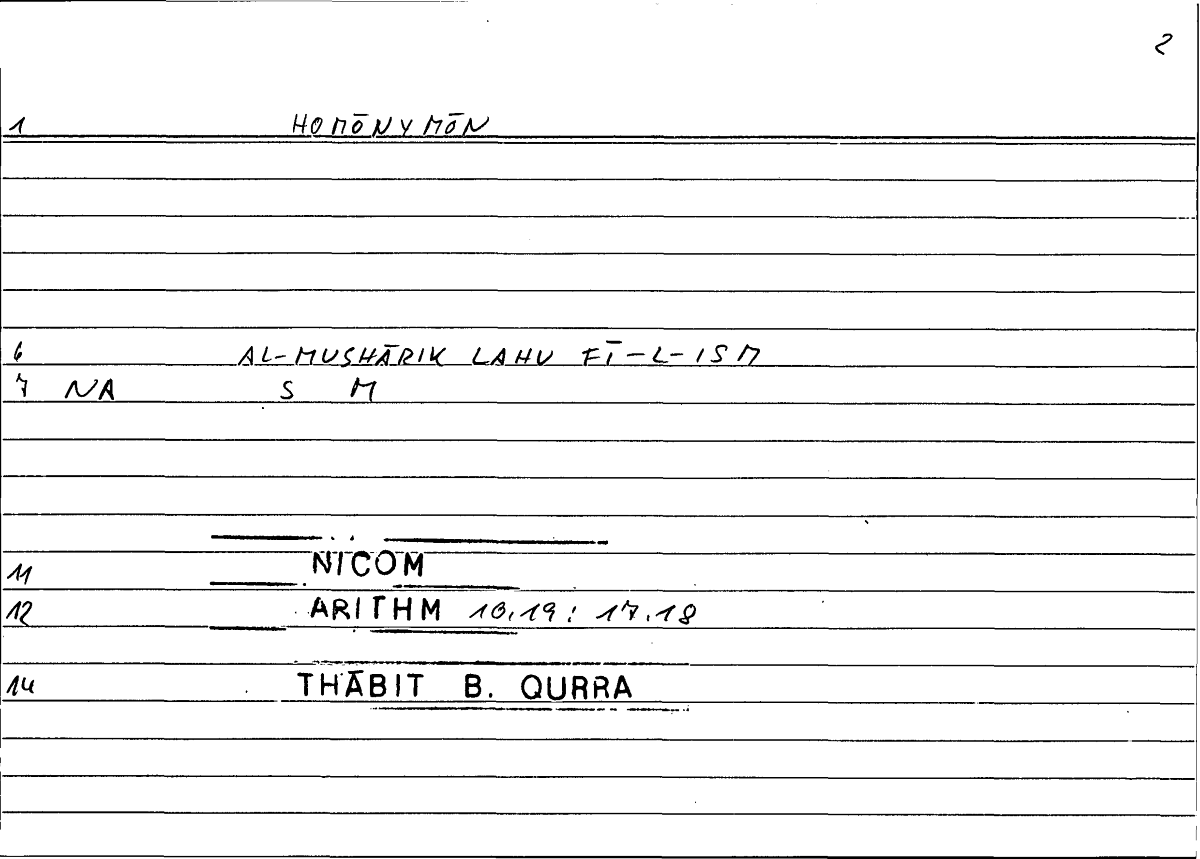 2
1 HOMŌNYMŌN
6 AL-MUSHĀRIK LAHU FĪ-L-ISM
7 NA S M
11 NICOM
12 ARITHM 10.19: 17.18
14 THĀBIT B. QURRA